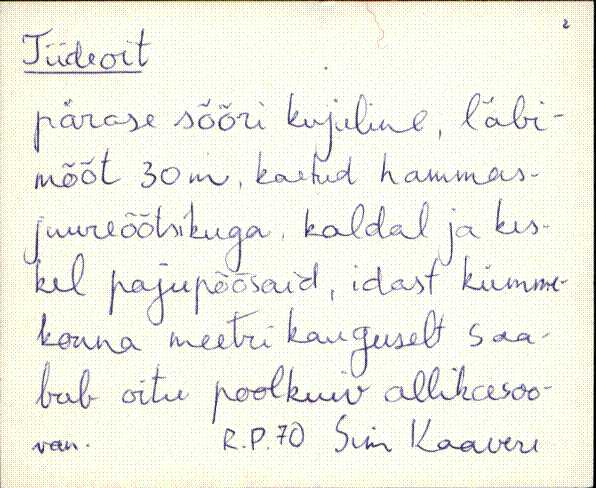 2
Tiideoit
pärase sõõri kujuline, läbi-
mõõt 30 m, kaetud hammas-
juureõõtsikuga. kaldal ja kes-
kel pajupõõsaid, idast kümme-
konna meetri kauguselt saa-
bub oitu poolkuiv allikasoo-
van. R.P.70 Sim Kaavere